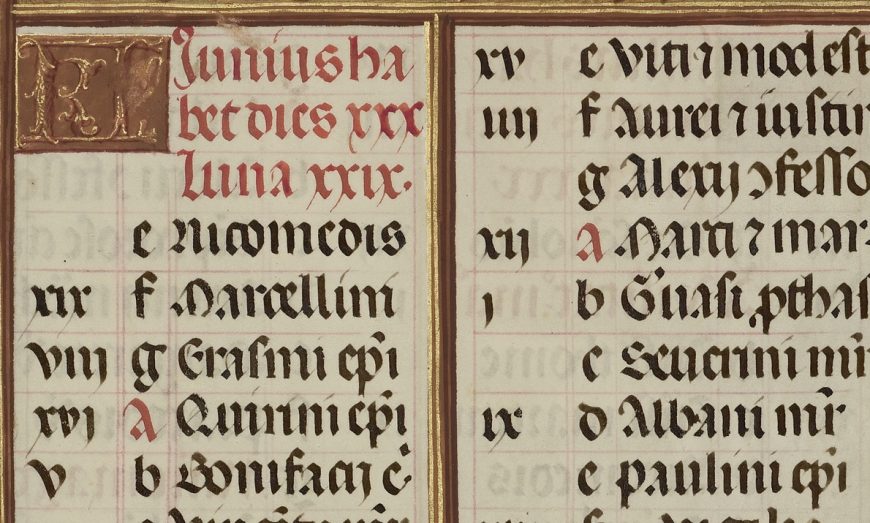 KL Iunius ha
bet dies xxx
Luna xxix.
e Nicomedis
xix f Marcellini
viii g Erasmi ep̄i
xvi A Quirini ep̄i
v b Bonifacii
xv e Viti ⁊ modest
iiij f Aurei ⁊ iustin
g Alexij ɔfesso
xij A Marci ⁊ mar
i b Geruasi ꝓthas
c Seuerini mr̄
ix d Albani mr̄
e paulini ep̄i